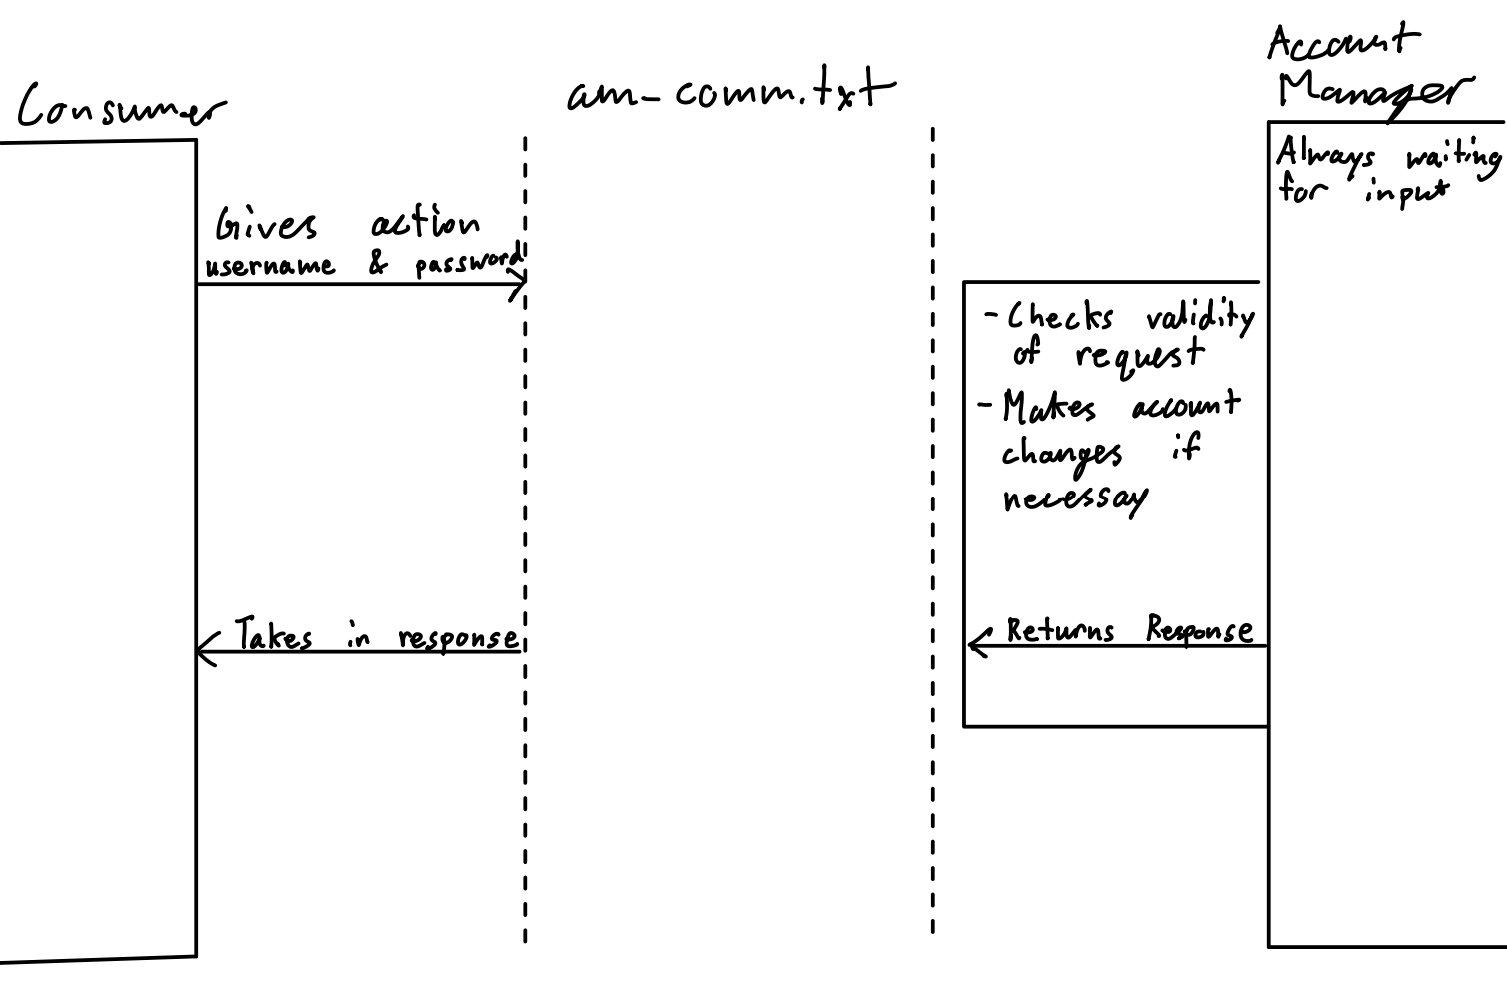 Consumer
am_comm.txt
Account
Manager
Always waiting
for input
Gives action
username & password
- Checks validity
of request
- Makes account
changes if
necessay
Takes in response
Returns Response